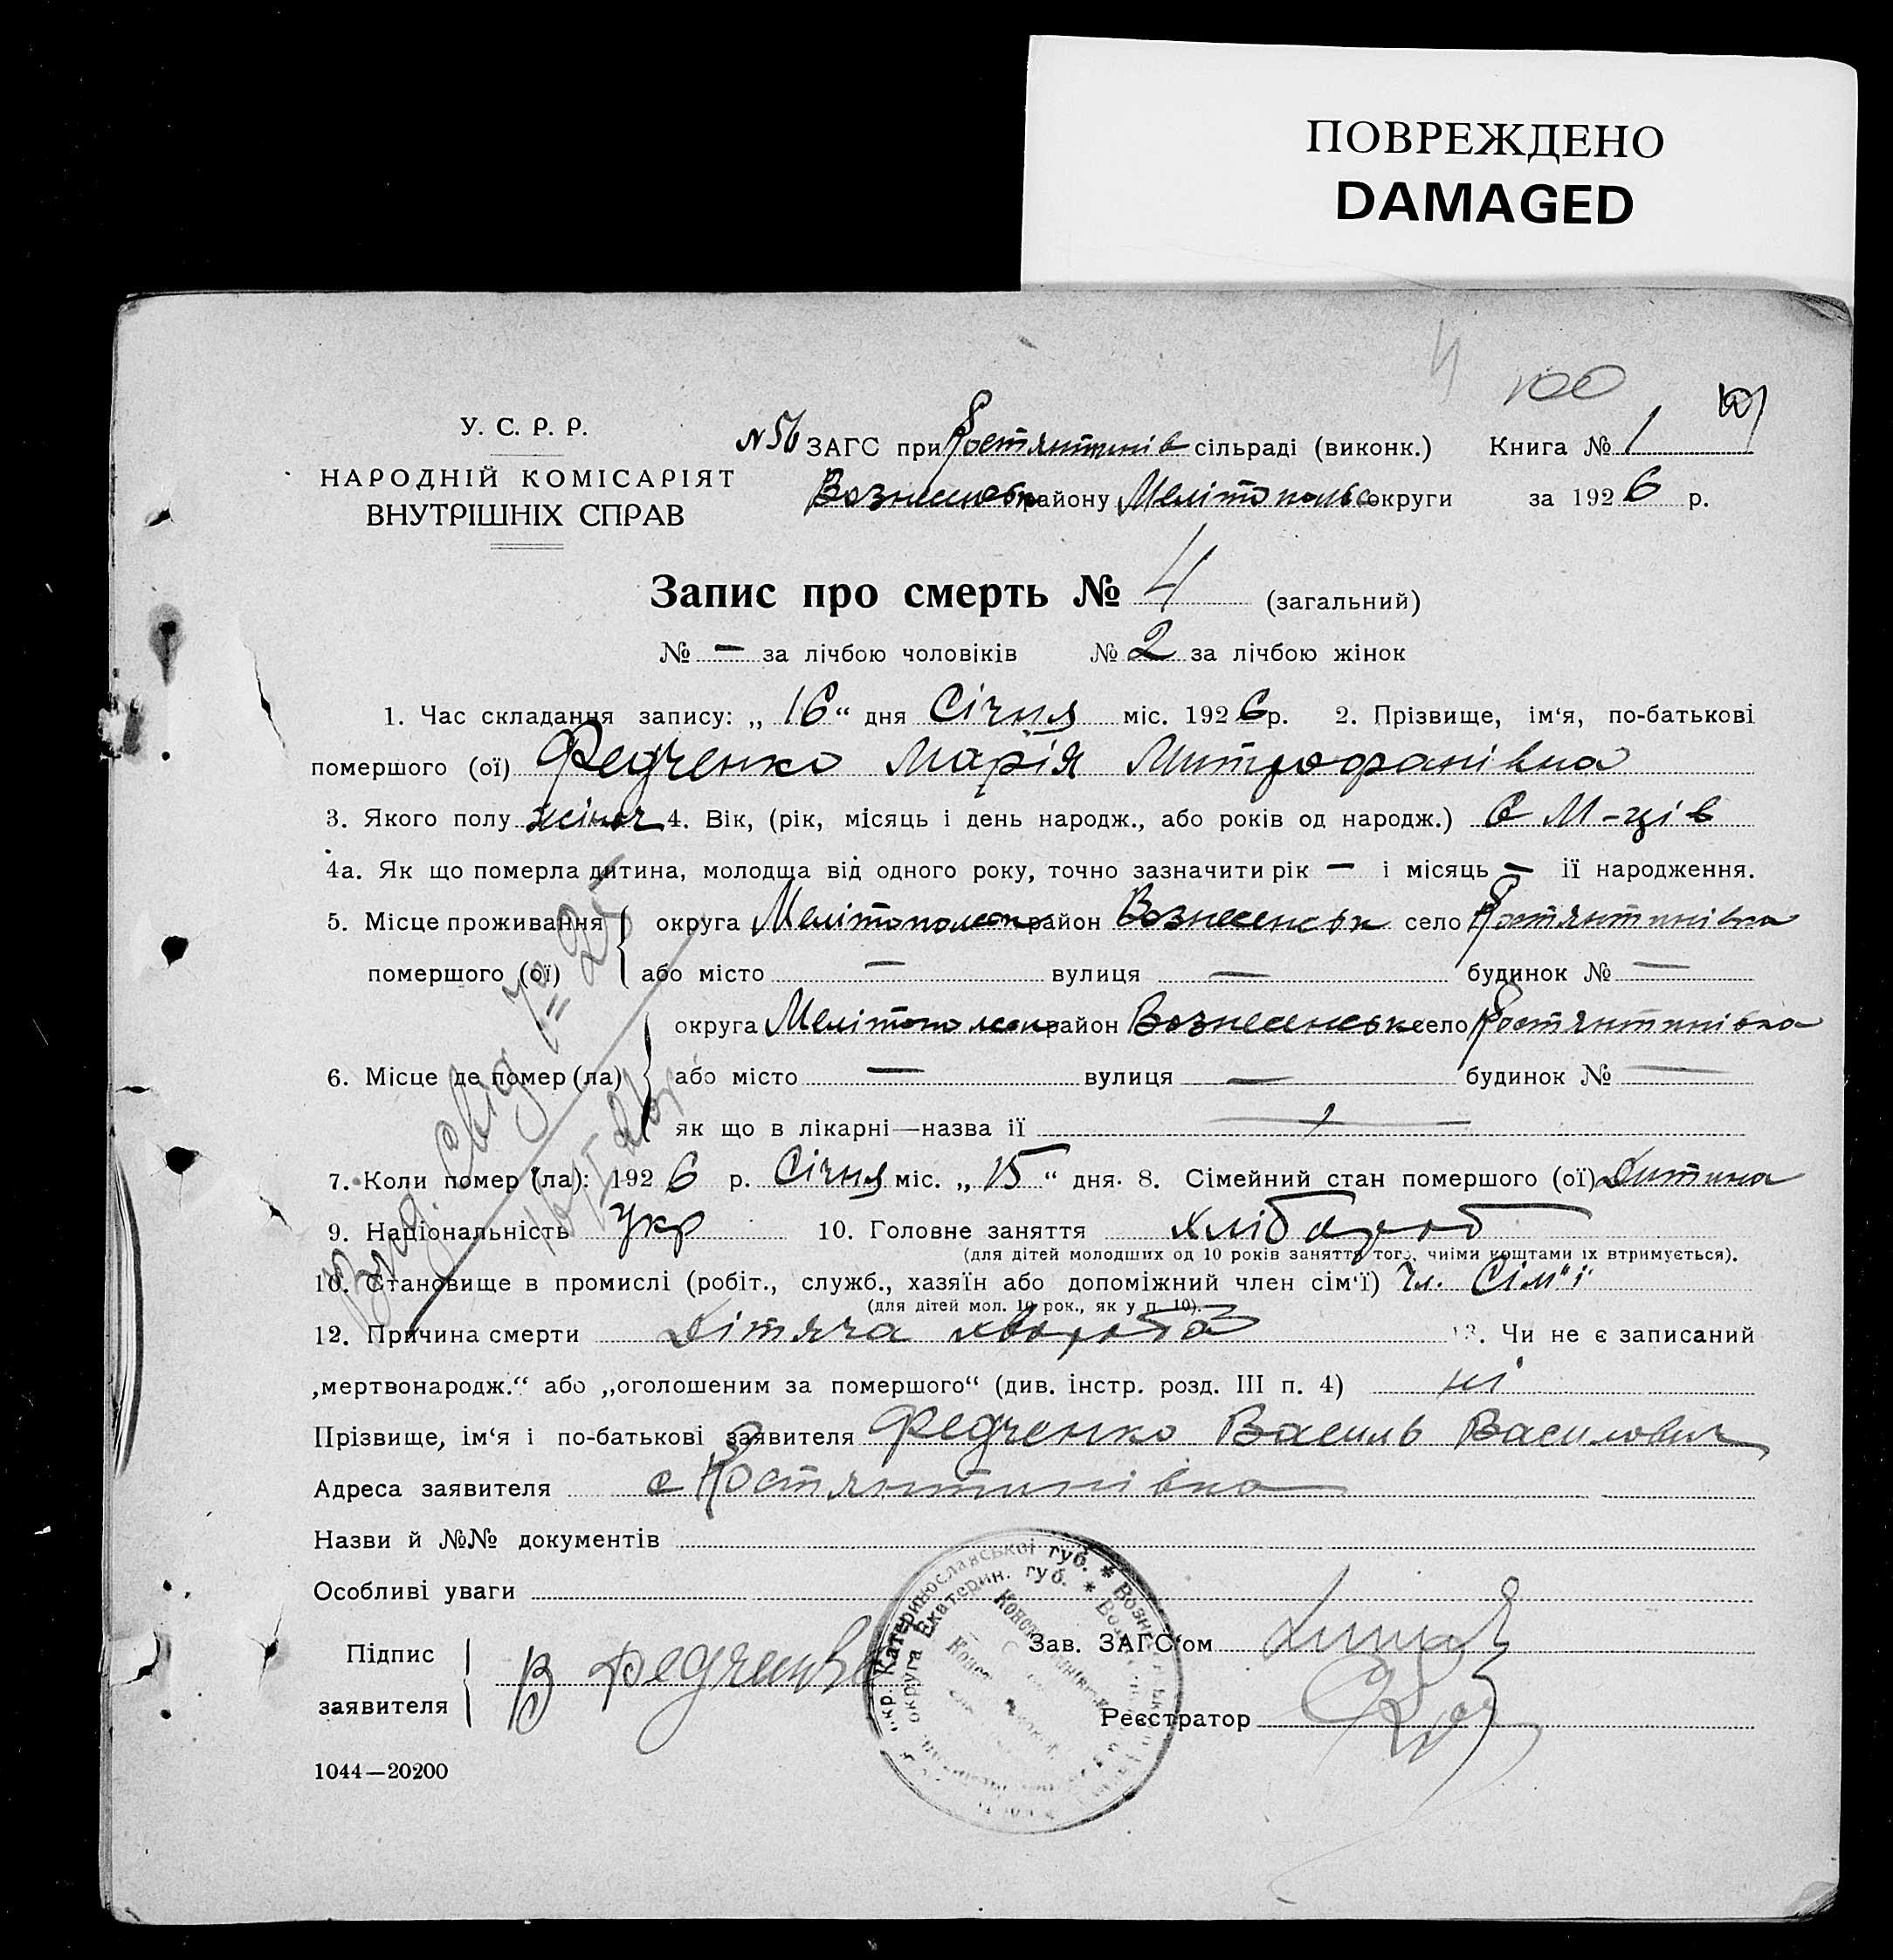 ПОВРЕЖДЕНО
DAMAGED
4
100
У. С. Р. Р.
НАРОДНІЙ КОМІСАРІЯТ
ВНУТРІШНІХ СПРАВ
N 56 ЗАГС при Костянтинів сільраді (виконк.) Книга № 1
Вознесенськ району Мелітопольс округи за 1926 р.
Запис про смерть № 4 (загальний)
№ — за лічбою чоловіків № 2 за лічбою жінок
1. Час складання запису: „ 16 “ дня Січня міс. 1926 р. 2. Прізвище, ім‘я, по-батькові
помершого (ої) Федченко Марія Митрофанівна
3. Якого полу жіноч 4. Вік, (рік, місяць і день народж., або років од народж.) 6 М-ців
4а. Як що померла дитина, молодща від одного року, точно зазначити рік — і місяць — ії народження.
5. Місце проживання помершого (ої) { округа Мелітополськ район Вознесенськ село Костянтинівка
або місто — вулиця — будинок № —
6. Місце де помер (ла) { округа Мелітополськ район Вознесенськ село Костянтинівка
або місто — вулиця — будинок № —
як що в лікарні—назва ії —
7. Коли помер (ла): 1926 р. Січня міс. „ 15 “ дня. 8. Сімейний стан помершого (ої) Дитина
9. Національність Укр 10. Головне заняття хлібароб
(для дітей молодших од 10 років заняття того, чиїми коштами їх втримується).
10. Становище в промислі (робіт., служб., хазяїн або допоміжний член сім‘ї) Чл. Сім"ї
(для дітей мол. 10 рок., як у п. 10).
12. Причина смерти Дітяча хвороба 13. Чи не є записаний
„мертвонародж.“ або „оголошеним за помершого“ (див. інстр. розд. III п. 4) ні
Прізвище, ім‘я і по-батькові заявителя Федченко Василь Василович
Адреса заявителя с Костянтинівка
Назви й №№ документів
Особливі уваги
Підпис заявителя { В Федченко
Зав. ЗАГС‘ом
Реєстратор
1044—20200
Вид. Свід № 25
16/I 26 р
окр. Катеринославської губ. * Вознесенськ
округа Екатерин. губ. *